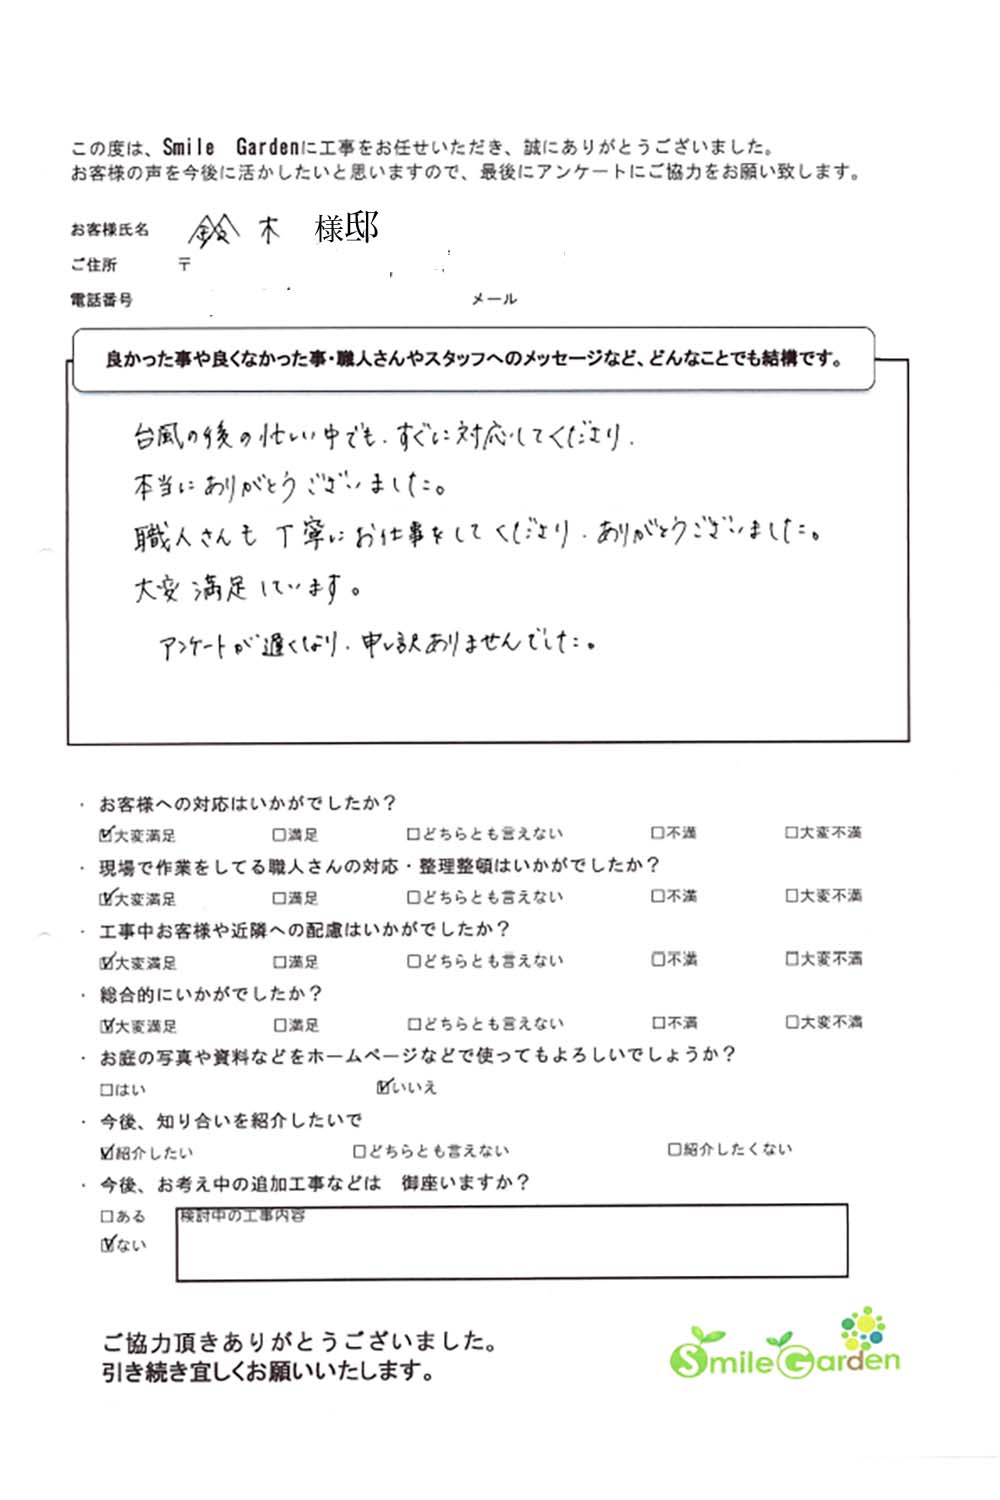 この度は、Smile Gardenに工事をお任せいただき、誠にありがとうございました。
お客様の声を今後に活かしたいと思いますので、最後にアンケートにご協力をお願い致します。
お客様氏名 鈴木 様邸
ご住所 〒
電話番号 メール
良かった事や良くなかった事・職人さんやスタッフへのメッセージなど、どんなことでも結構です。
台風の後の忙しい中でも、すぐに対応してくださり、
本当にありがとうございました。
職人さんも丁寧にお仕事をしてくださり、ありがとうございました。
大変満足しています。
アンケートが遅くなり、申し訳ありませんでした。
・ お客様への対応はいかがでしたか？
☑大変満足 □満足 □どちらとも言えない □不満 □大変不満
・ 現場で作業をしてる職人さんの対応・整理整頓はいかがでしたか？
☑大変満足 □満足 □どちらとも言えない □不満 □大変不満
・ 工事中お客様や近隣への配慮はいかがでしたか？
☑大変満足 □満足 □どちらとも言えない □不満 □大変不満
・ 総合的にいかがでしたか？
☑大変満足 □満足 □どちらとも言えない □不満 □大変不満
・ お庭の写真や資料などをホームページなどで使ってもよろしいでしょうか？
□はい ☑いいえ
・ 今後、知り合いを紹介したいで
☑紹介したい □どちらとも言えない □紹介したくない
・ 今後、お考え中の追加工事などは 御座いますか？
□ある 検討中の工事内容
☑ない
ご協力頂きありがとうございました。
引き続き宜しくお願いいたします。
Smile Garden